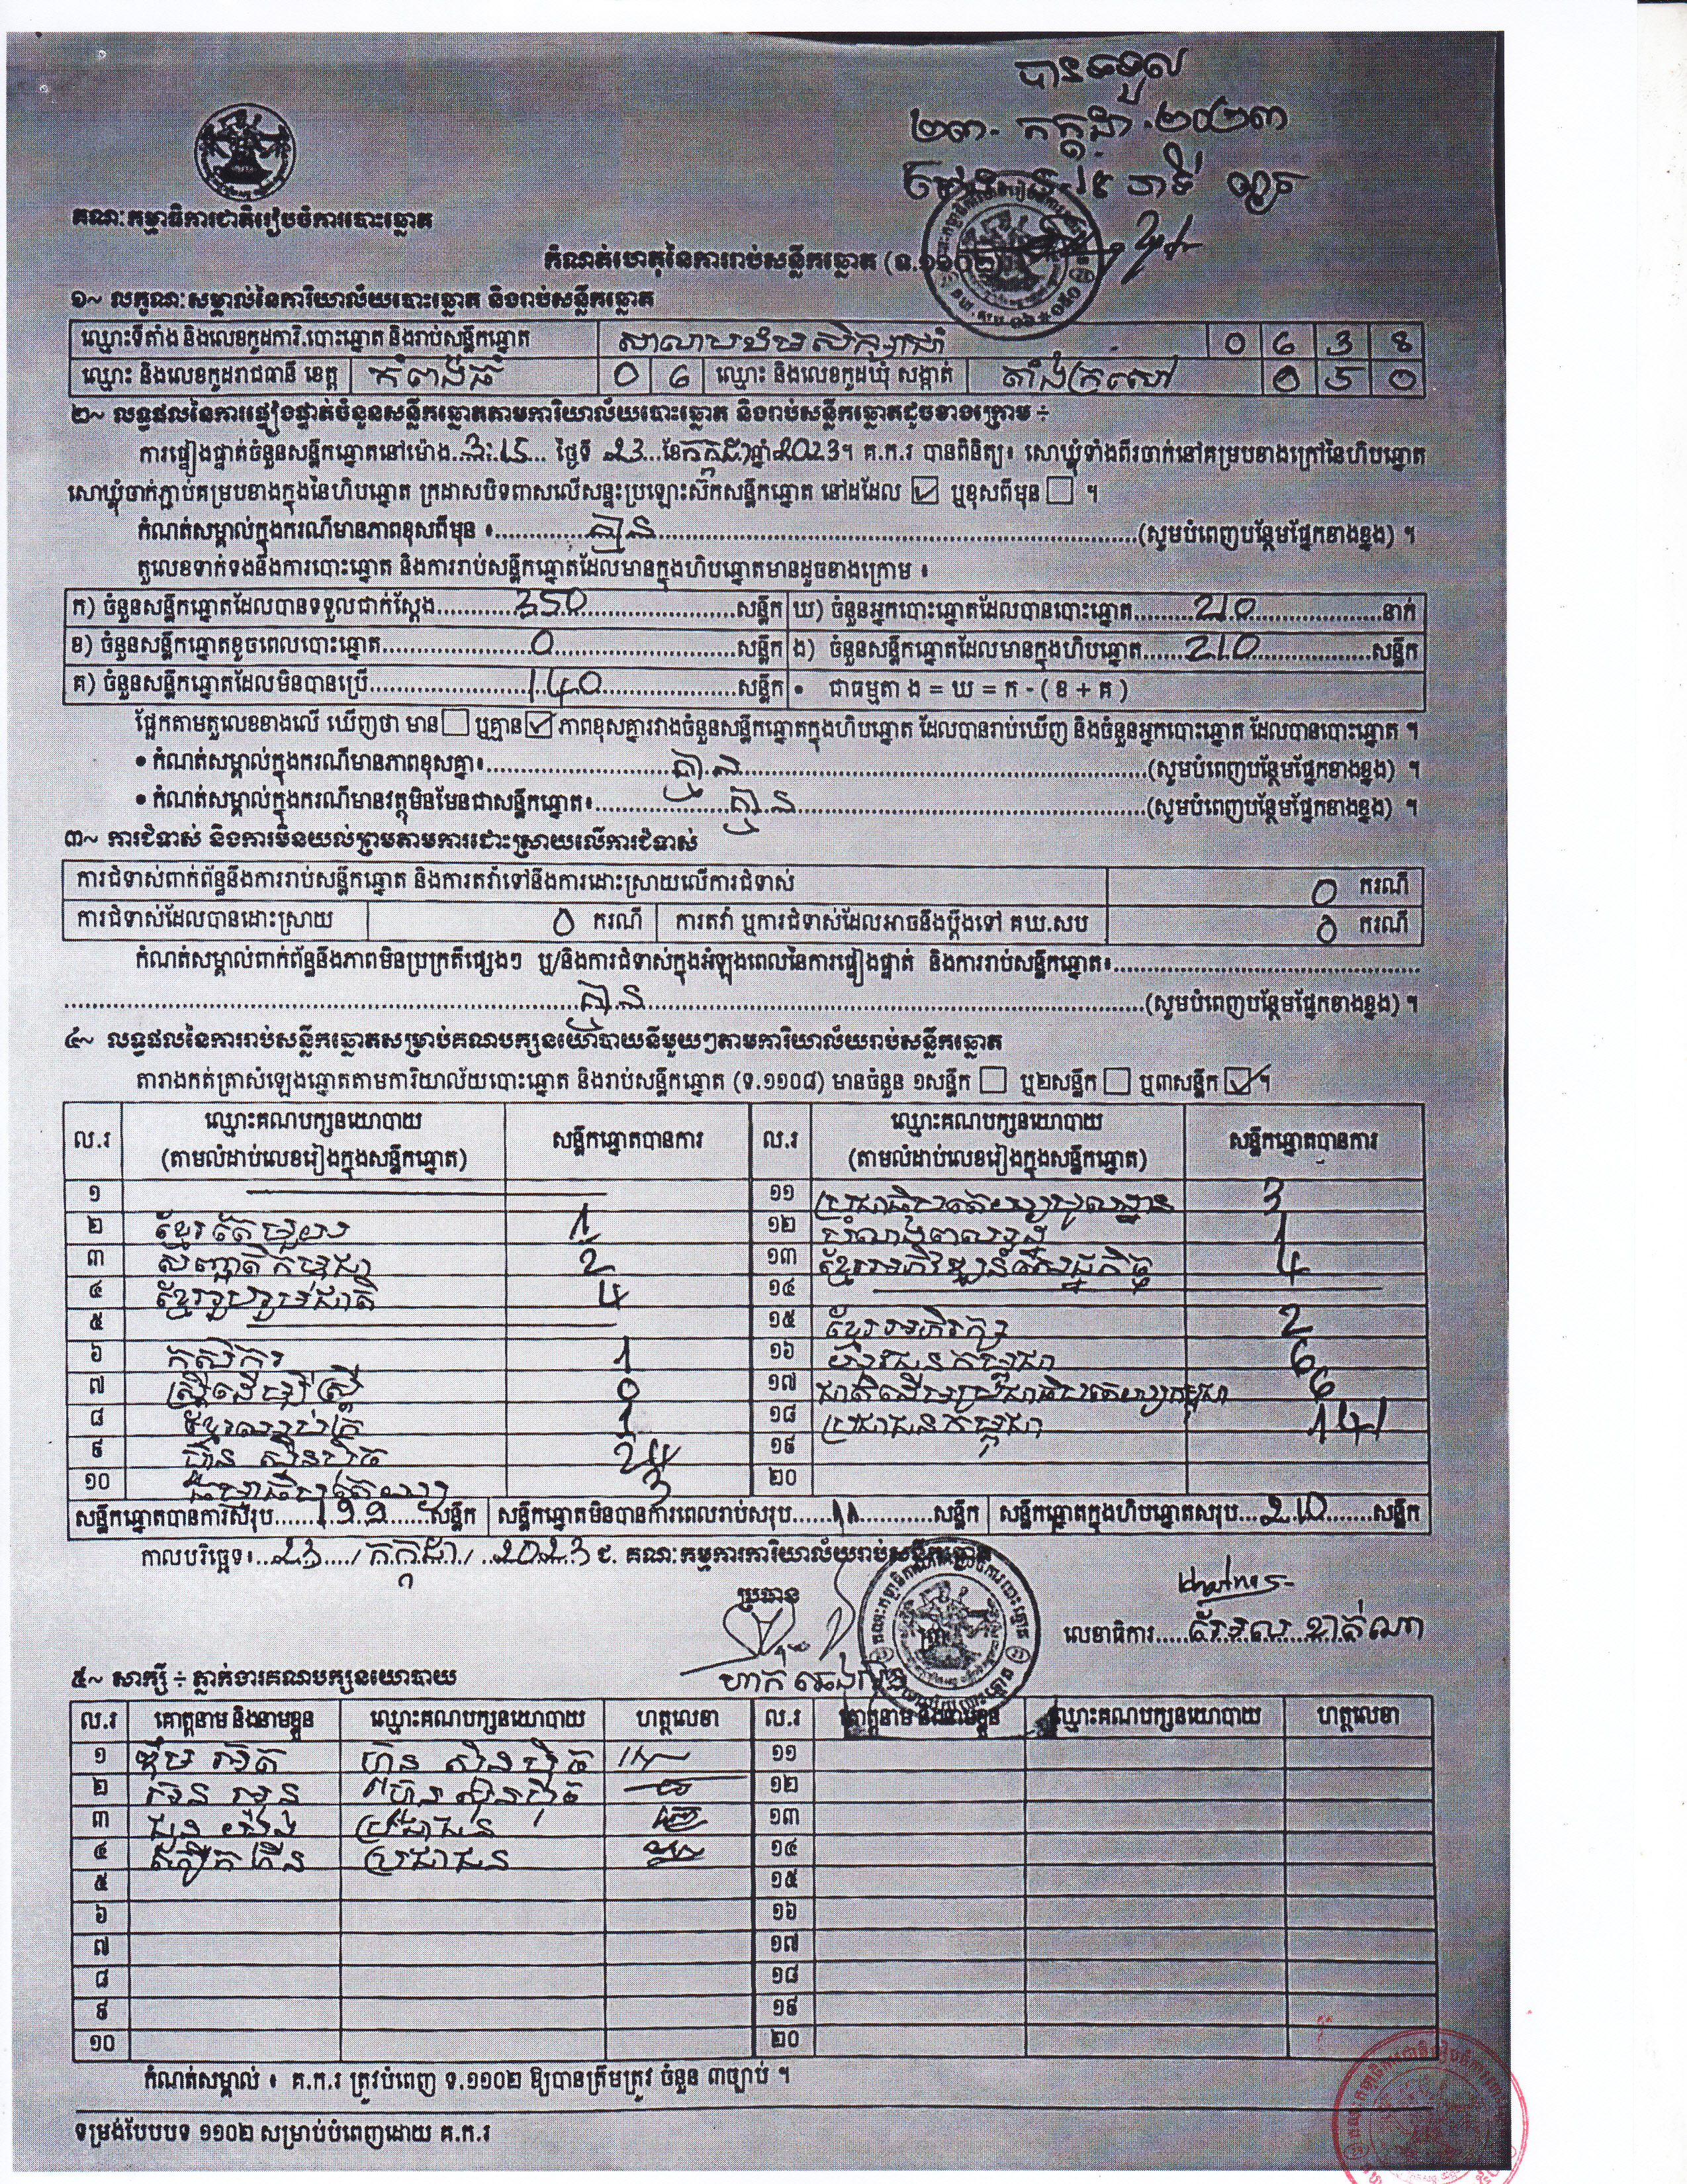 បានទទួល
២៣. កក្កដា. ២០២៣
គណៈកម្មាធិការជាតិរៀបចំការបោះឆ្នោត
កំណត់ហេតុនៃការរាប់សន្លឹកឆ្នោត (ទ.១១០២)
១~ លក្ខណៈសម្គាល់នៃការិយាល័យបោះឆ្នោត និងរាប់សន្លឹកឆ្នោត
ឈ្មោះទីតាំង និងលេខកូដការិ.បោះឆ្នោត និងរាប់សន្លឹកឆ្នោត 0 6 3 8
ឈ្មោះ និងលេខកូដរាជធានី ខេត្ត កំពង់ធំ 0 6 ឈ្មោះ និងលេខកូដឃុំ សង្កាត់ តាំងក្រសៅ 0 5 0
២~ លទ្ធផលនៃការផ្ទៀងផ្ទាត់ចំនួនសន្លឹកឆ្នោតតាមការិយាល័យបោះឆ្នោត និងរាប់សន្លឹកឆ្នោតដូចខាងក្រោម ÷
ការផ្ទៀងផ្ទាត់ចំនួនសន្លឹកឆ្នោតនៅម៉ោង 3:15 ថ្ងៃទី 23 ខែ កក្កដា ឆ្នាំ 2023។ គ.ក.រ បានពិនិត្យ៖ សោឃ្លុំទាំងពីរចាក់នៅគម្របខាងក្រៅនៃហិបឆ្នោត
សោឃ្លុំចាក់ភ្ជាប់គម្របខាងក្នុងនៃហិបឆ្នោត ក្រដាសបិទពាសលើសន្ទះប្រឡោះស៊កសន្លឹកឆ្នោត នៅដដែល ☑ ឬខុសពីមុន ☐ ។
កំណត់សម្គាល់ក្នុងករណីមានភាពខុសពីមុន ៖ គ្មាន (សូមបំពេញបន្ថែមផ្នែកខាងខ្នង) ។
តួលេខទាក់ទងនឹងការបោះឆ្នោត និងការរាប់សន្លឹកឆ្នោតដែលមានក្នុងហិបឆ្នោតមានដូចខាងក្រោម ៖
ក) ចំនួនសន្លឹកឆ្នោតដែលបានទទួលជាក់ស្តែង 350 សន្លឹក ឃ) ចំនួនអ្នកបោះឆ្នោតដែលបានបោះឆ្នោត 210 នាក់
ខ) ចំនួនសន្លឹកឆ្នោតខូចពេលបោះឆ្នោត 0 សន្លឹក ង) ចំនួនសន្លឹកឆ្នោតដែលមានក្នុងហិបឆ្នោត 210 សន្លឹក
គ) ចំនួនសន្លឹកឆ្នោតដែលមិនបានប្រើ 140 សន្លឹក • ជាធម្មតា ង = ឃ = ក - ( ខ + គ )
ផ្អែកតាមតួលេខខាងលើ ឃើញថា មាន ☐ ឬគ្មាន ☑ ភាពខុសគ្នារវាងចំនួនសន្លឹកឆ្នោតក្នុងហិបឆ្នោត ដែលបានរាប់ឃើញ និងចំនួនអ្នកបោះឆ្នោត ដែលបានបោះឆ្នោត ។
• កំណត់សម្គាល់ក្នុងករណីមានភាពខុសគ្នា៖ គ្មាន (សូមបំពេញបន្ថែមផ្នែកខាងខ្នង) ។
• កំណត់សម្គាល់ក្នុងករណីមានវត្ថុមិនមែនជាសន្លឹកឆ្នោត៖ គ្មាន (សូមបំពេញបន្ថែមផ្នែកខាងខ្នង) ។
៣~ ការជំទាស់ និងការមិនយល់ព្រមតាមការដោះស្រាយលើការជំទាស់
ការជំទាស់ពាក់ព័ន្ធនឹងការរាប់សន្លឹកឆ្នោត និងការតវ៉ាទៅនឹងការដោះស្រាយលើការជំទាស់ 0 ករណី
ការជំទាស់ដែលបានដោះស្រាយ 0 ករណី ការតវ៉ា ឬការជំទាស់ដែលអាចនឹងប្តឹងទៅ គឃ.សប 0 ករណី
កំណត់សម្គាល់ពាក់ព័ន្ធនឹងភាពមិនប្រក្រតីផ្សេងៗ ឬ/និងការជំទាស់ក្នុងអំឡុងពេលនៃការផ្ទៀងផ្ទាត់ និងការរាប់សន្លឹកឆ្នោត៖
គ្មាន (សូមបំពេញបន្ថែមផ្នែកខាងខ្នង) ។
៤~ លទ្ធផលនៃការរាប់សន្លឹកឆ្នោតសម្រាប់គណបក្សនយោបាយនីមួយៗតាមការិយាល័យរាប់សន្លឹកឆ្នោត
តារាងកត់ត្រាសំឡេងឆ្នោតតាមការិយាល័យបោះឆ្នោត និងរាប់សន្លឹកឆ្នោត (ទ.១១០៨) មានចំនួន ១សន្លឹក ☐ ឬ២សន្លឹក ☐ ឬ៣សន្លឹក ☑ ។
ល.រ ឈ្មោះគណបក្សនយោបាយ (តាមលំដាប់លេខរៀងក្នុងសន្លឹកឆ្នោត) សន្លឹកឆ្នោតបានការ ល.រ ឈ្មោះគណបក្សនយោបាយ (តាមលំដាប់លេខរៀងក្នុងសន្លឹកឆ្នោត) សន្លឹកឆ្នោតបានការ
១ ១១ ប្រជាធិបតេយ្យមូលដ្ឋាន 3
២ ខ្មែរតែមួយ 1 ១២ 1
៣ សញ្ជាតិកម្ពុជា 2 ១៣ ខ្មែរអភិវឌ្ឍន៍សេដ្ឋកិច្ច 4
៤ ខ្មែររួបរួមជាតិ 4 ១៤
៥ ១៥ ខ្មែរអភិរក្ស 2
៦ កសិករ 1 ១៦ យុវជនកម្ពុជា 6
៧ ស្ត្រីដើម្បីស្ត្រី 0 ១៧ ជាតិដើមប្រជាធិបតេយ្យកម្ពុជា 6
៨ ខ្មែរឈប់ក្រ 1 ១៨ ប្រជាជនកម្ពុជា 141
៩ ហ៊្វុនស៊ិនប៉ិច 24 ១៩
១០ 3 ២០
សន្លឹកឆ្នោតបានការសរុប 199 សន្លឹក សន្លឹកឆ្នោតមិនបានការពេលរាប់សរុប 11 សន្លឹក សន្លឹកឆ្នោតក្នុងហិបឆ្នោតសរុប 210 សន្លឹក
កាលបរិច្ឆេទ៖ 23 / កក្កដា / 2023 ជ. គណៈកម្មការការិយាល័យរាប់សន្លឹកឆ្នោត
ប្រធាន
លេខាធិការ
៥~ សាក្សី ÷ ភ្នាក់ងារគណបក្សនយោបាយ
ល.រ គោត្តនាម និងនាមខ្លួន ឈ្មោះគណបក្សនយោបាយ ហត្ថលេខា ល.រ គោត្តនាម និងនាមខ្លួន ឈ្មោះគណបក្សនយោបាយ ហត្ថលេខា
១ ហ៊្វុនស៊ិនប៉ិច ១១
២ ហ៊្វុនស៊ិនប៉ិច ១២
៣ ប្រជាជន ១៣
៤ ប្រជាជន ១៤
៥ ១៥
៦ ១៦
៧ ១៧
៨ ១៨
៩ ១៩
១០ ២០
កំណត់សម្គាល់ ៖ គ.ក.រ ត្រូវបំពេញ ទ.១១០២ ឱ្យបានត្រឹមត្រូវ ចំនួន ៣ច្បាប់ ។
ទម្រង់បែបបទ ១១០២ សម្រាប់បំពេញដោយ គ.ក.រ